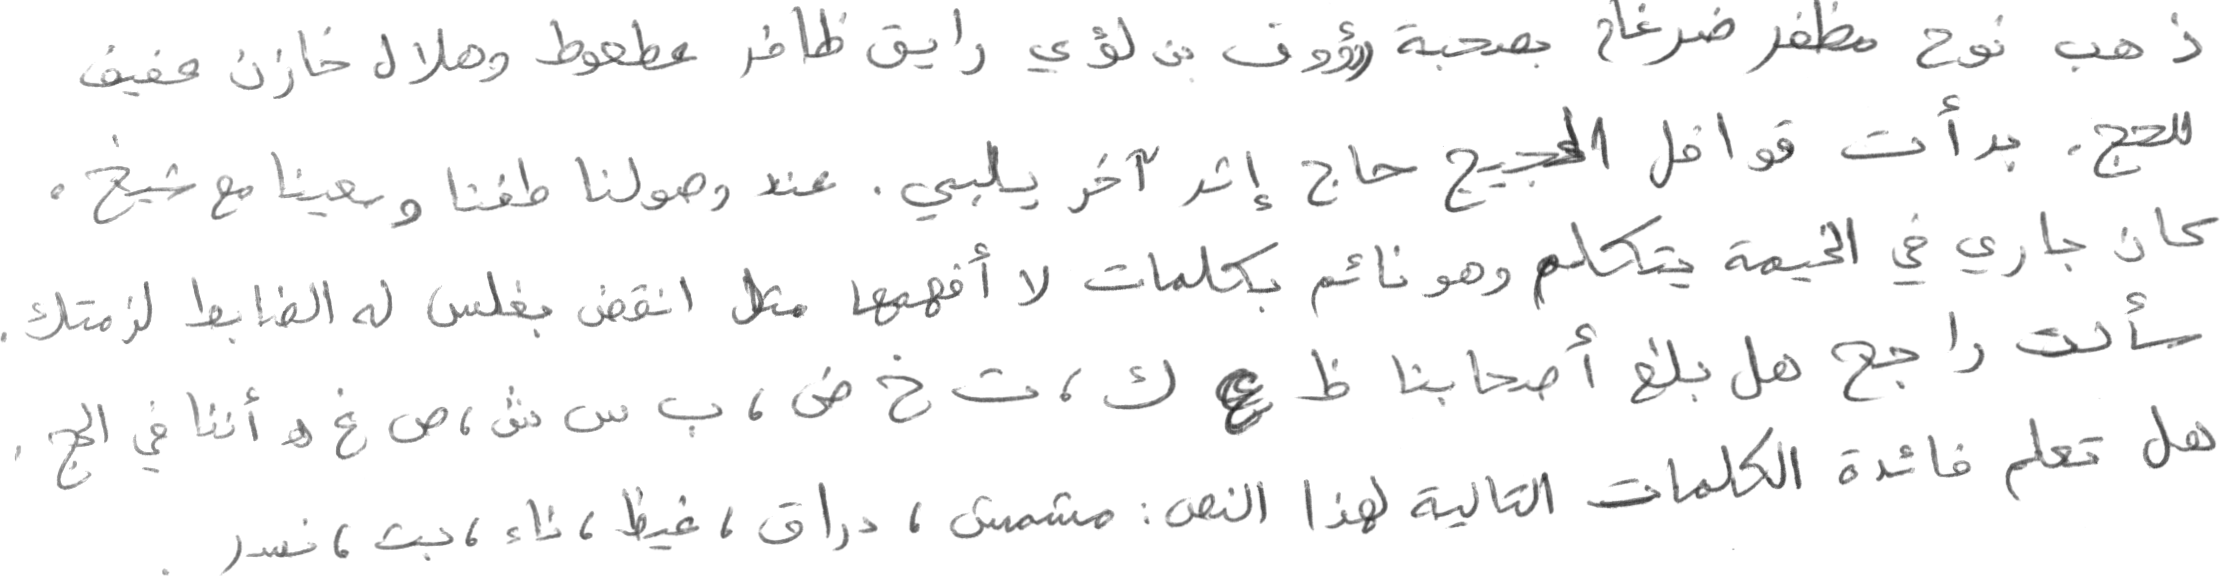 ذهب نوح مظفر ضرغام بصحبة رؤوف بن لؤي رايق ظافر عطعوط وهلال خازن عفيف
للحج. بدأت قوافل الحجيج حاج إثر آخر يلبي. عند وصولنا طفنا وسعينا مع شيخ.
كان جاري في الخيمة يتكلم وهو نائم بكلمات لا أفهمها مثل انقض بغلس له الضابط لزمتك.
سألت راجح هل بلغ أصحابنا ظ ع ك، ت خ ض، ب س ش، ص غ ه أننا في الحج.
هل تعلم فائدة الكلمات التالية لهذا النص: مشمش، دراق، غيظ، ناء، بت، نسر.